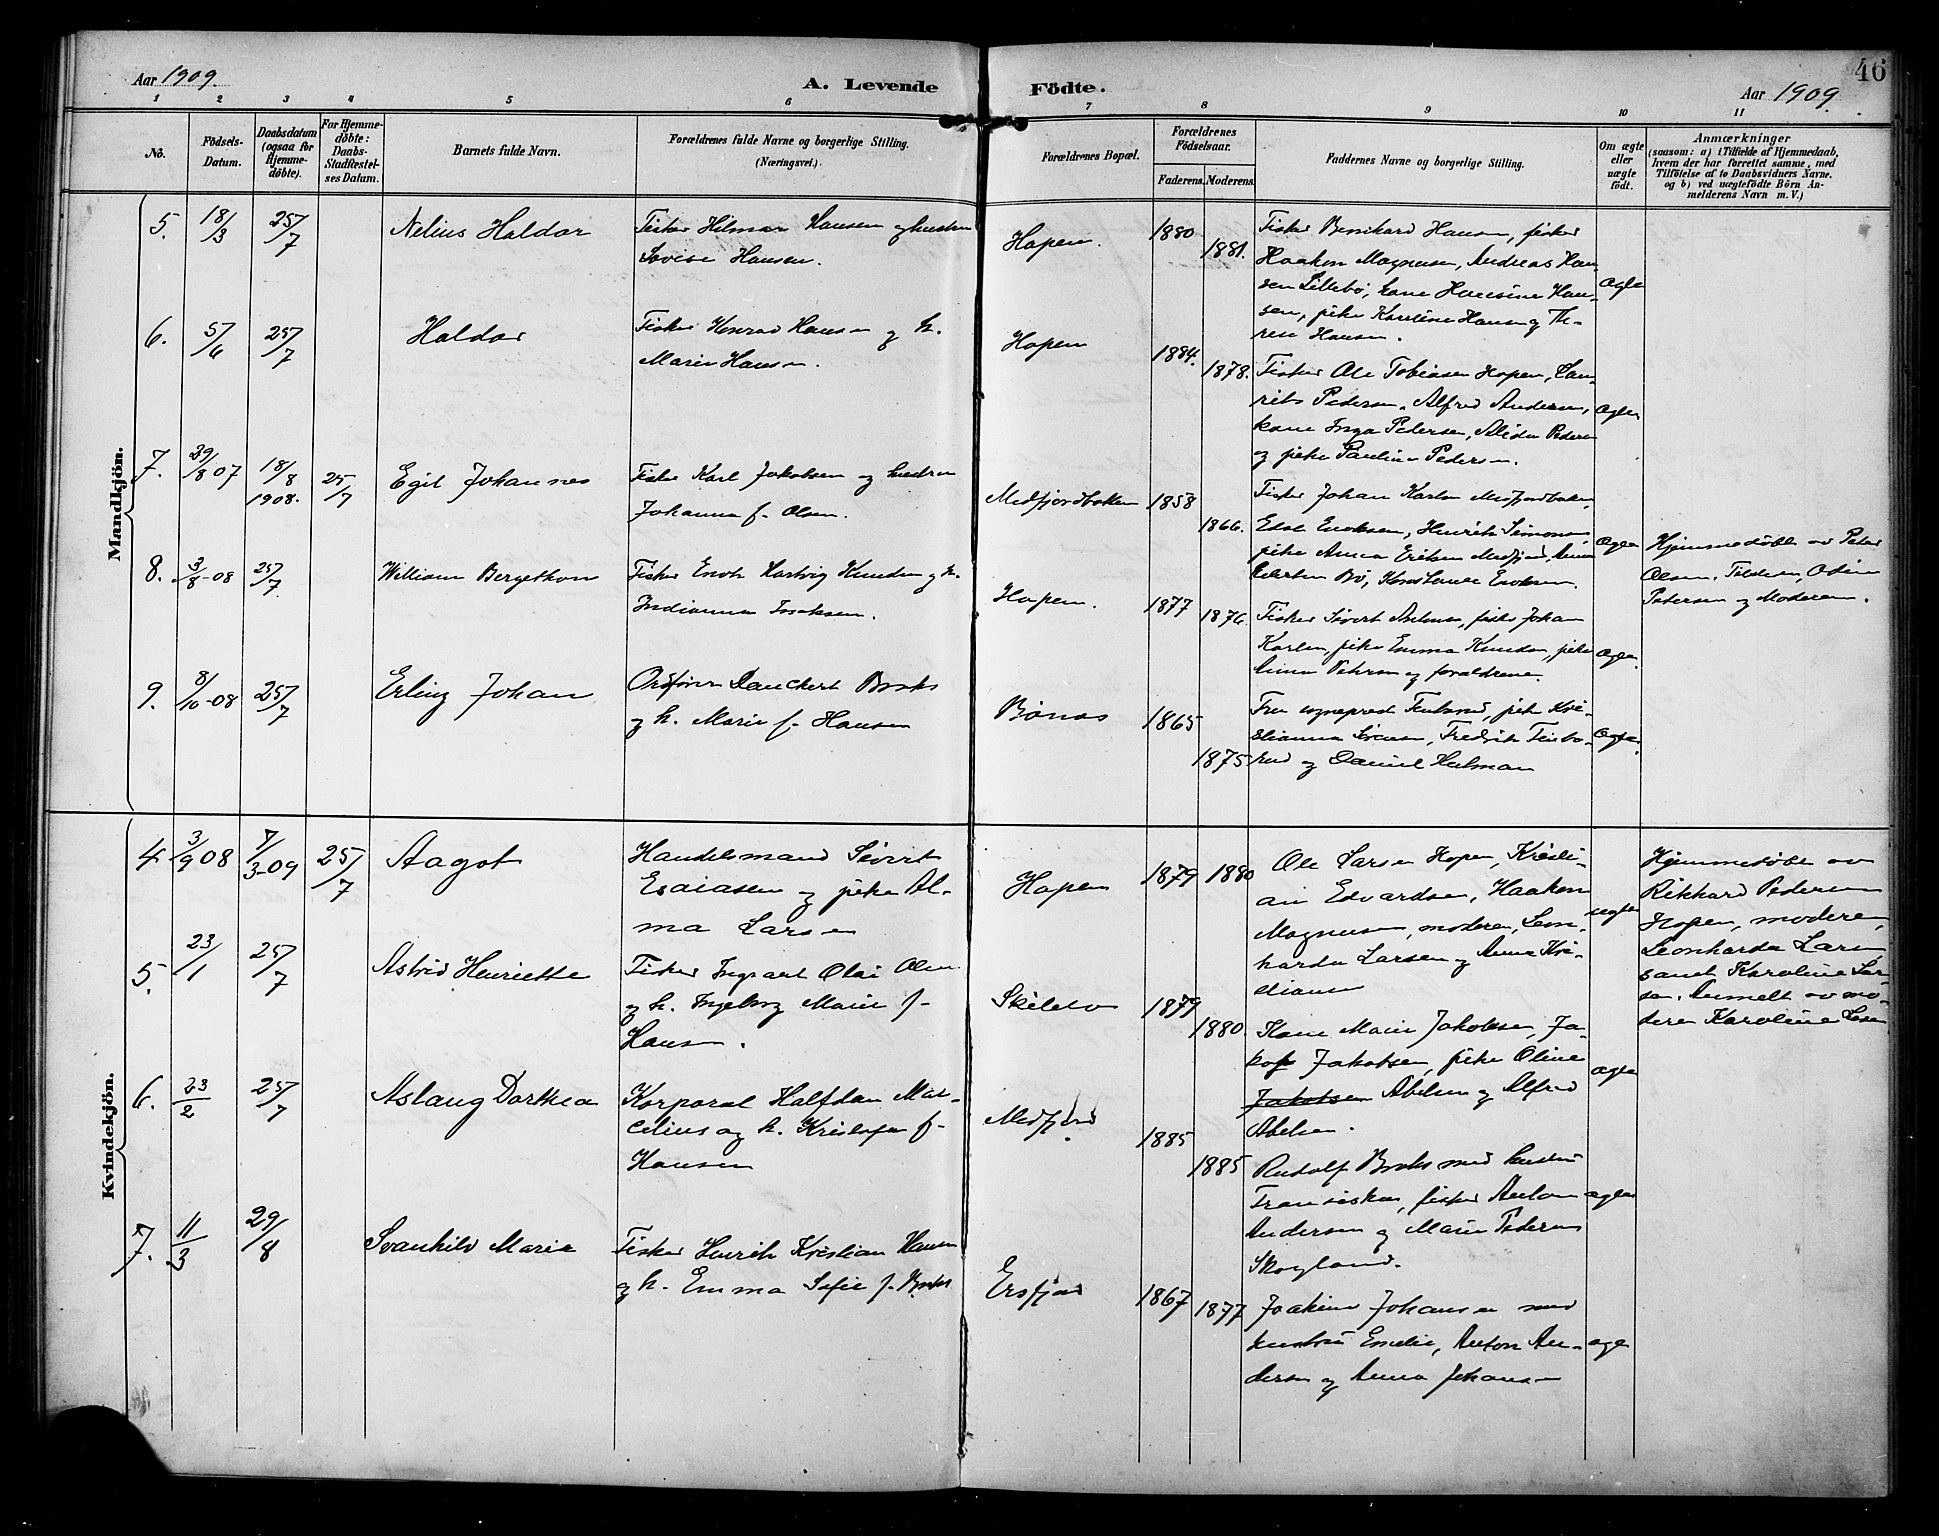 46
Aar 1909.
A. Levende
Födte.
Aar 1909.
1 2 3 4 5 6 7 8 9 10 11
Nô.
Födsels-
Datum.
Daabsdatum
(ogsaa for
Hjemme-
döbte).
For Hjemme-
döbte:
Daabs-
Stadfæstel-
ses Datum.
Barnets fulde Navn.
Forældrenes fulde Navne og borgerlige Stilling.
(Næringsvei.)
Forældrenes Bopæl.
Forældrenes
Födselsaar.
Faderens.
Moderens.
Faddernes Navne og borgerlige Stilling.
Om ægte
eller
uægte
födt.
Anmærkninger
(saasom: a) i Tilfælde af Hjemmedaab,
hvem der har forrettet samme, med
Tilföielse af to Daabsvidners Navne.
og b) ved uægtefödte Börn An-
melderens Navn m. V.)
Mandkjön.
5. 18/3 25/7 Nelius Haldor
Fisker Hilmar Hansen og hustru
Lovise Hansen.
Hopen. 1880 1881.
Fisker Bernhard Hansen, fisker
Haakon Magnusen, Andreas Han-
sen Lillebø, kone Hansine Han-
sen, pike Karoline Hansen og The-
rese Hansen.
Ægte
6. 5/6 25/7 Haldor
Fisker Konrad Hansen og h.
Marie Hansen.
Hopen 1884. 1878.
Fisker Ole Tobiasen Hopen, Lau-
rits Pedersen, Alfred Andersen,
kone Inga Petersen, Alida Pedersen
og pike Pauline Pedersen.
Ægte
7. 29/8 07 18/8 1908. 25/7 Egil Johannes
Fisker Karl Jakobsen og hustru
Johanna f. Olsen.
Medfjordbotten 1858 1866.
Fisker Johan Karlsen Medfjordbotten,
Enoksen, Henrik Simonsen
pike Anna Eriksen Medfjord,
Bø, Konstanse Enoksen.
Ægte
Hjemmedøbt av Peter
Olsen. Tilstede, Odin
Petersen og Moderen.
8. 3/8-08 25/7. William Bergethon
Fisker Enok Hartvig Knudsen og h.
Indianna Isaksen.
Hopen. 1877 1876.
Fisker Sivert Abelsen, fisker Johan
Karlsen, pike Emma Knudsen, pike
Anna Petersen og forældrene.
Ægte.
9. 8/10-08 25/7 Erling Johan
Ordfører Danckert Broks
og h. Marie f. Hansen
Bønes 1865 1875
Fru sogneprest, pike Kri-
stianna Sørensen, Fredrik
og Daniel Helman
Ægte.
Kvindekjön.
4 3/9 08 7/3-09 25/7 Aagot
Handelsmand Sivert
Esaiasen og pike Al-
ma Larsen
Hopen 1879 1880
Ole Larsen Hopen, Kristi-
an Edvardsen, Haakon
Magnusen, moderen, Leon-
harda Larsen og Anna Kri-
stiansen
uegte
Hjemmedøbt av
Rikhard Pedersen
Hopen, moderen,
Leonharda Larsen
samt Karoline Lar-
sen. Anmeldt av mo-
deren Karoline Larsen
5. 23/1 25/7 Astrid Henriette
Fisker Ingvart Olai Olsen
og h. Ingeborg Marie f.
Hansen.
Skilebo 1879 1880
Kone Marie Jakobsen, Ja-
kop Jakobsen, pike Oline
Jakobsen Abelsen og Alfred
Abelsen.
Ægte
6. 23/2 25/7 Aslaug Dorthea
Korporal Halfdan Mar-
celius og h. Kristofa f.
Hansen
Medfjord. 1885 1885
Rudolf Broks med hustru
Fransiska, fisker Anton
Andersen og Marie Pedersen
Skogland.
ægte
7. 11/3 29/8 Svanhild Marie
Fisker Henrik Kristian Hansen
og h. Emma Sofie f. Broks
Ersfjord 1867 1877
Joakim Johansen med
hustru Emelie, Anton An-
dersen og Anna Johansen
ægte